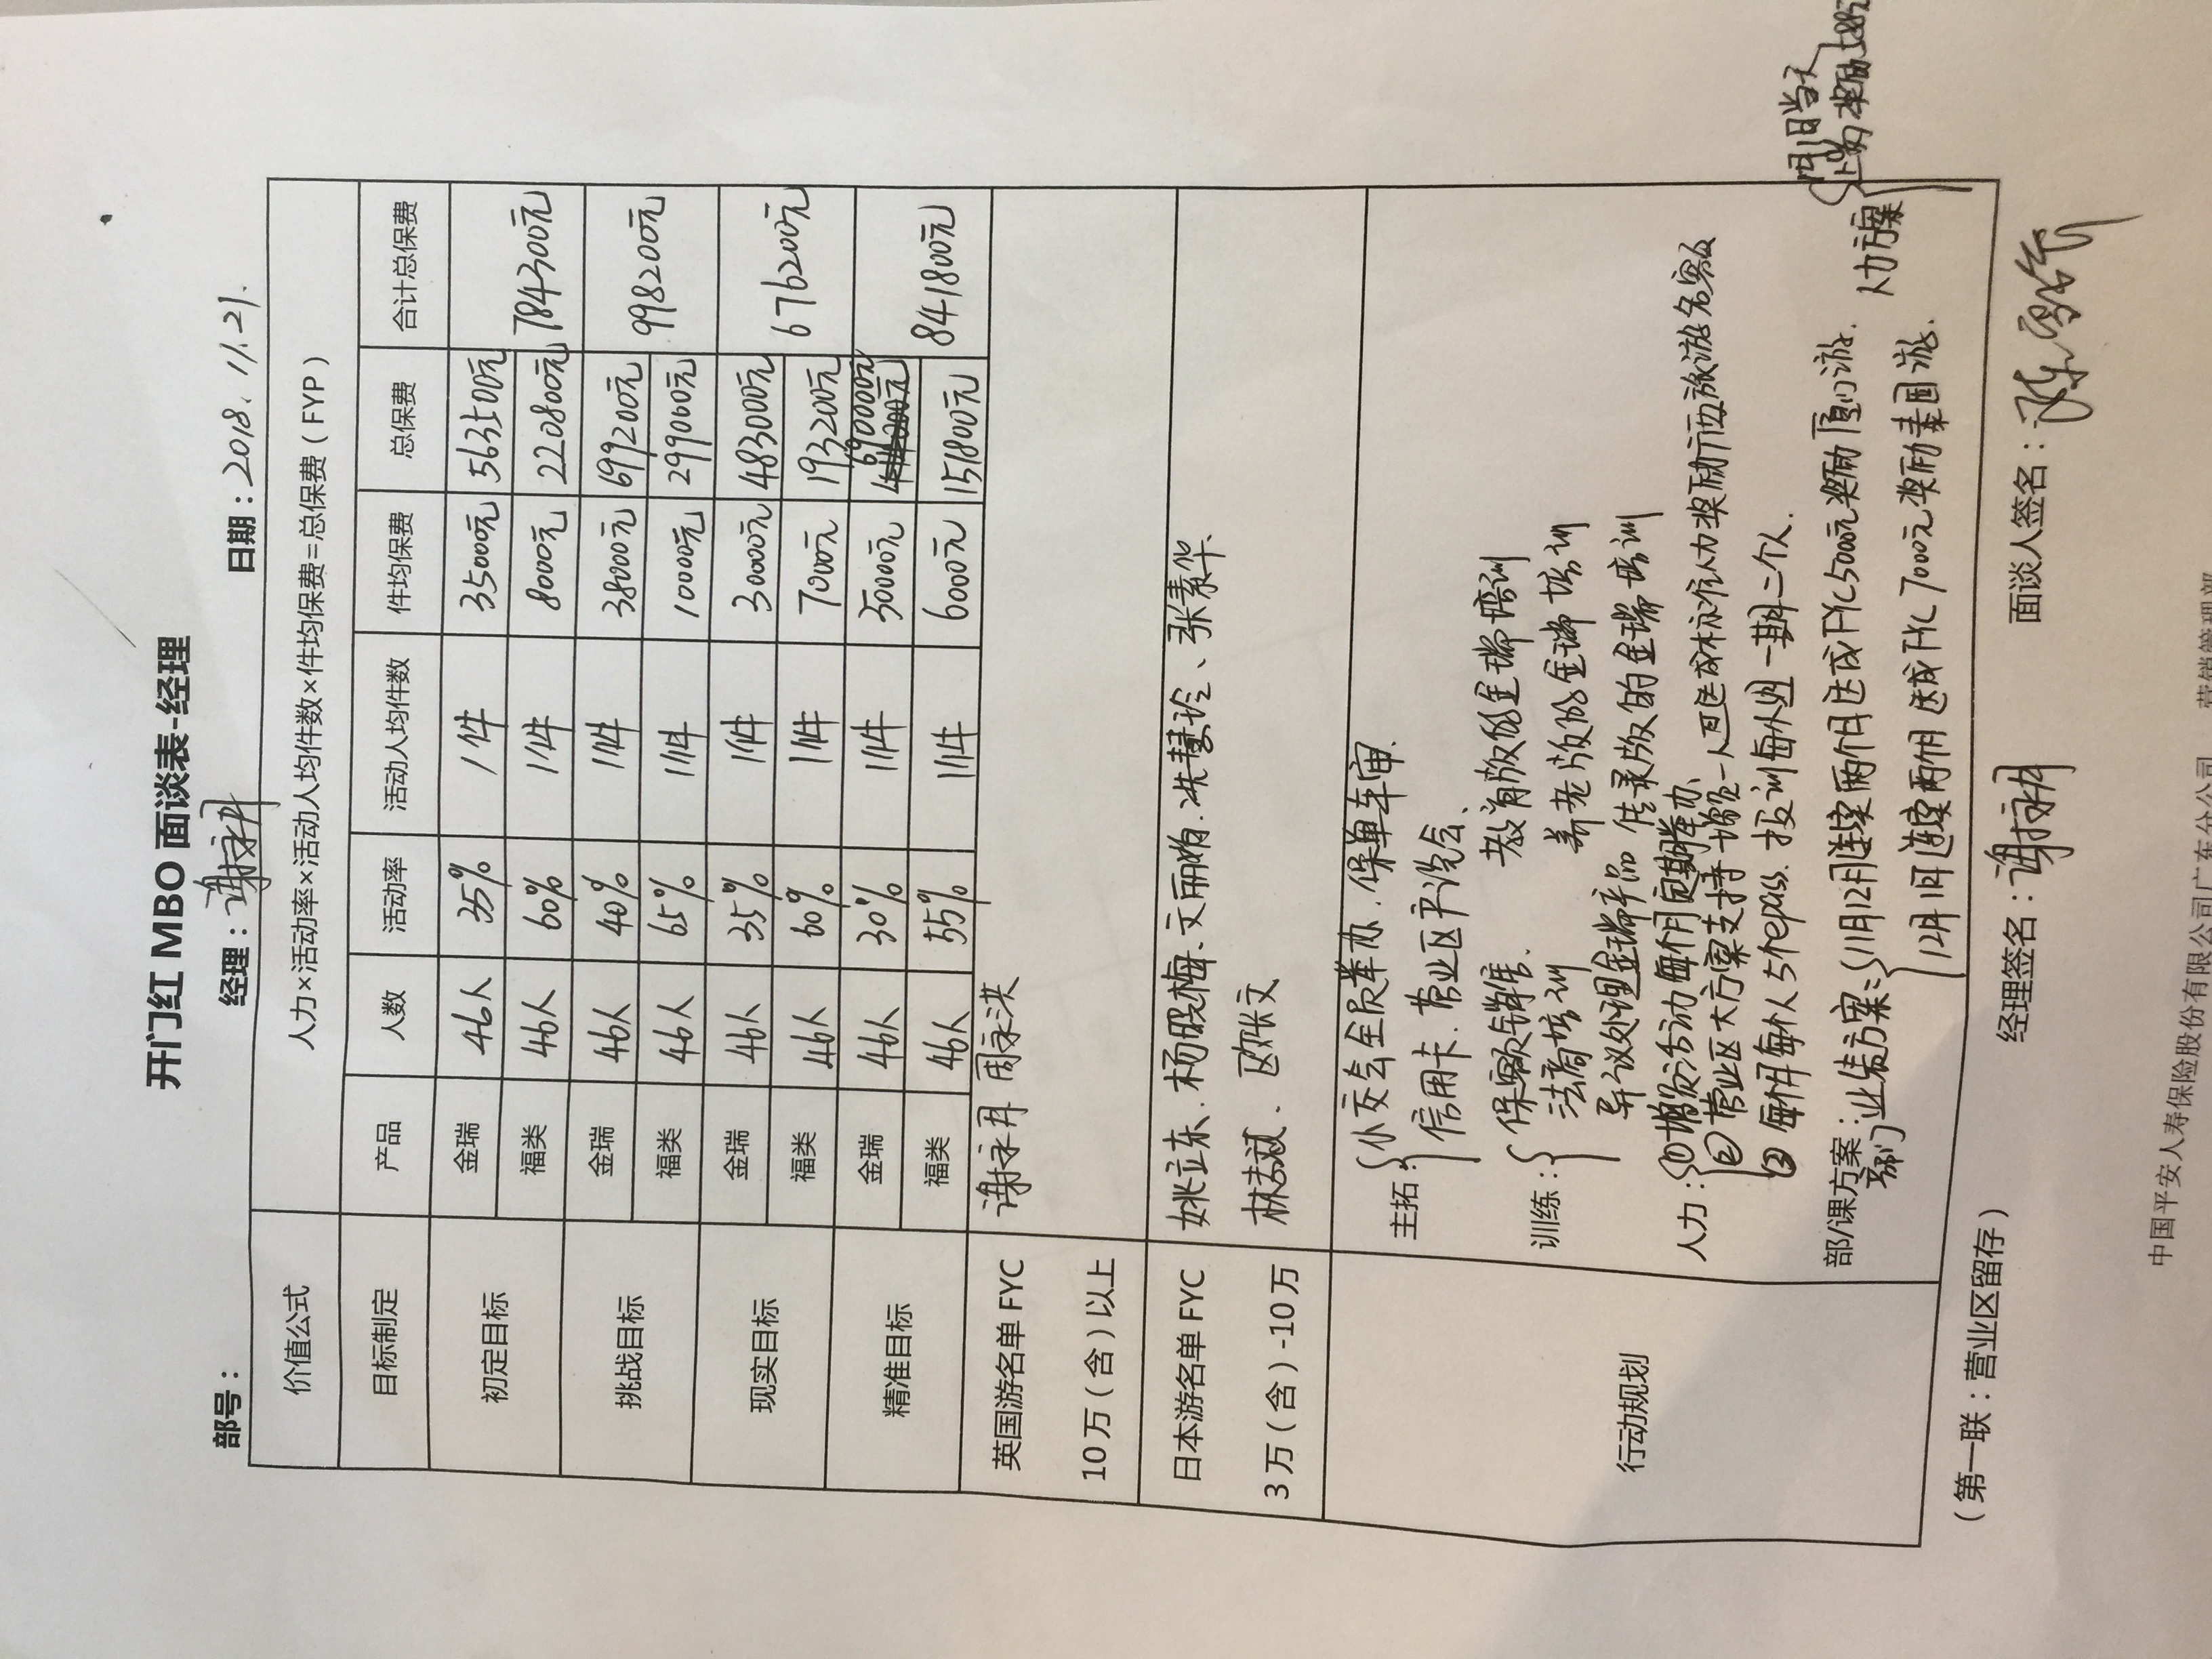 开门红 MBO 面谈表-经理
部号： 经理：谢永丹 日期：2018.11.21.
价值公式 人力×活动率×活动人均件数×件均保费=总保费（FYP）
目标制定 产品 人数 活动率 活动人均件数 件均保费 总保费 合计总保费
初定目标 金瑞 46人 35% 1件 35000元 563500元 784300元
福类 46人 60% 1件 8000元 220800元
挑战目标 金瑞 46人 40% 1件 38000元 699200元 998200元
福类 46人 65% 1件 10000元 299000元
现实目标 金瑞 46人 35% 1件 30000元 483000元 676200元
福类 46人 60% 1件 7000元 193200元
精准目标 金瑞 46人 30% 1件 50000元 690000元 841800元
福类 46人 55% 1件 6000元 151800元
英国游名单 FYC 谢永丹 周永洪
10万（含）以上
日本游名单 FYC 姚立东、杨晓梅、文丽嫦、冼慧玲、张素华、
3万（含）-10万 林志斌、区张文
行动规划
主拓： 小交会全员举办、保单年审、
信用卡、营业区产说会、
训练： 保额销售、 教育版的金瑞培训
法商培训 养老版的金瑞培训
异议处理金瑞产品 传承版的金瑞培训
人力： ①增员活动每个月定期举办、
②营业区大方案支持 增员一人且达成标准人力奖励 旅游名额
③每个月每个人5个epass、投训每个组一期二个人、
部/课方案： 业绩方案： 11月12月连续两个月达成FYC5000元奖励厦门游、
部门 12月1月连续两个月达成FYC7000元奖励泰国游、
人力方案 1月1日当天
上岗奖励
（第一联：营业区留存） 经理签名：谢永丹 面谈人签名：
中国平安人寿保险股份有限公司广东分公司 营销管理部